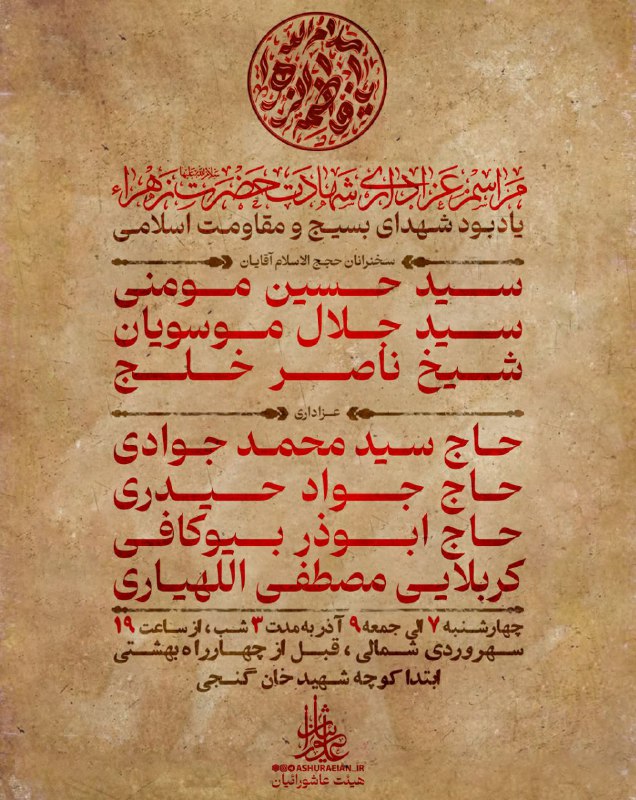 سلام الله
یا فاطمة الزهرا
مراسم عزاداری شهادت حضرت زهراء سلام‌الله‌علیها
یادبود شهدای بسیج و مقاومت اسلامی
سخنرانان حجج الاسلام آقایان
سید حسین مومنی
سید جلال موسویان
شیخ ناصر خلج
عزاداری
حاج سید محمد جوادی
حاج جواد حیدری
حاج ابوذر بیوکافی
کربلایی مصطفی اللهیاری
چهارشنبه ۷ الی جمعه ۹ آذر به مدت ۳ شب، از ساعت ۱۹
سهروردی شمالی، قبل از چهارراه بهشتی
ابتدا کوچه شهید خان گنجی
عاشورائیان
ASHURAEIAN_IR
هیئت عاشورائیان